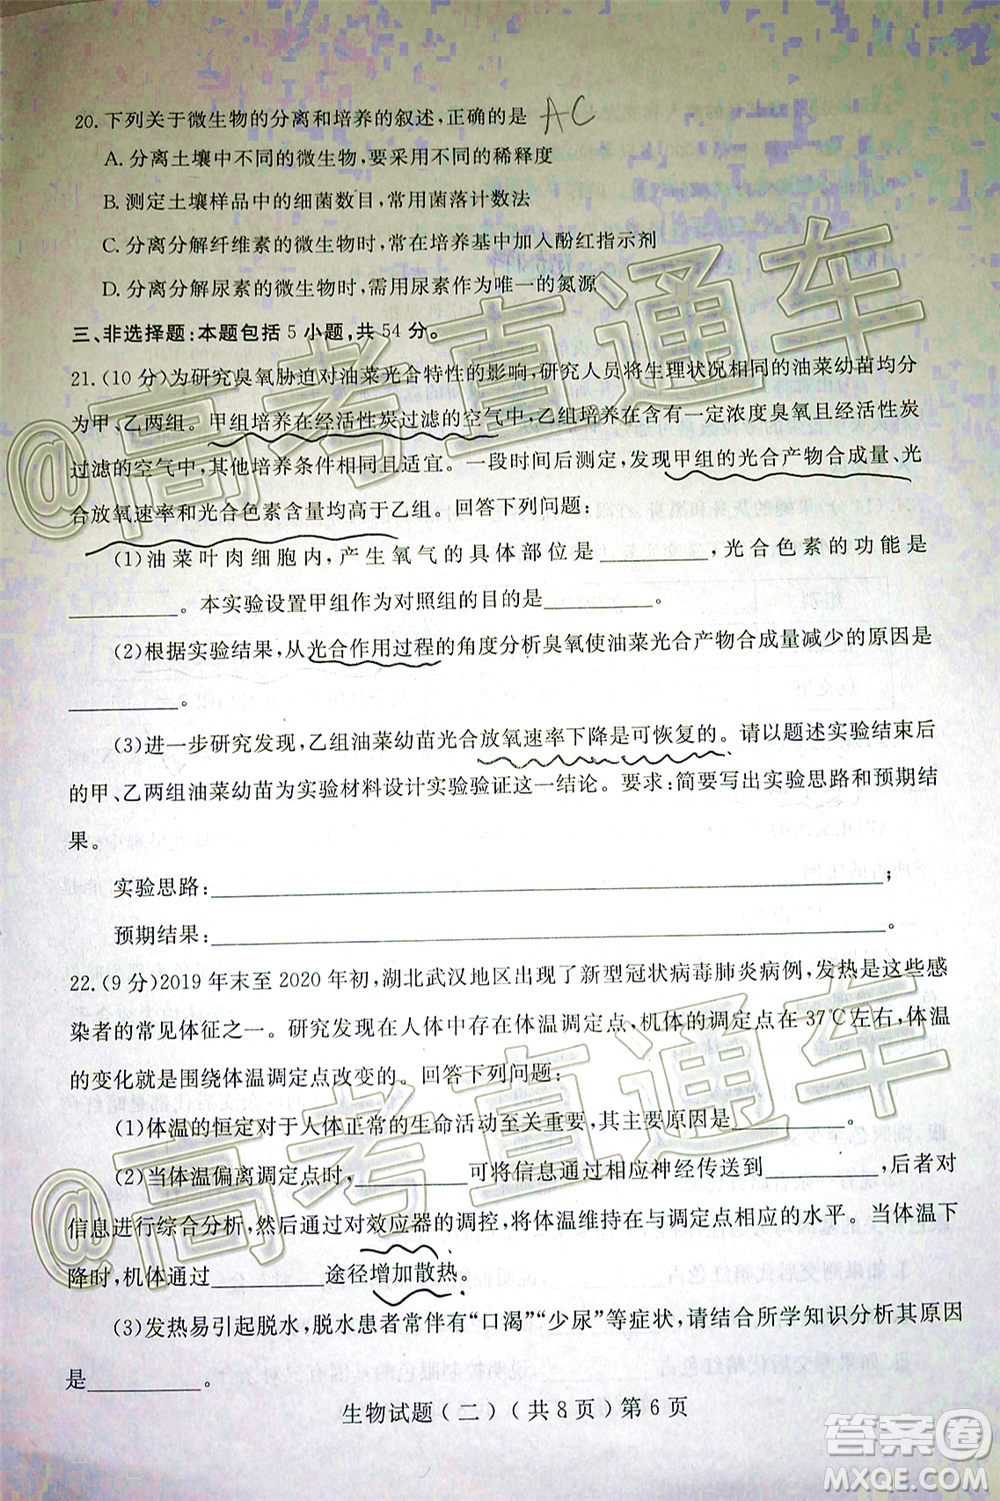 20.下列关于微生物的分离和培养的叙述,正确的是 AC
A.分离土壤中不同的微生物,要采用不同的稀释度
B.测定土壤样品中的细菌数目,常用菌落计数法
C.分离分解纤维素的微生物时,常在培养基中加入酚红指示剂
D.分离分解尿素的微生物时,需用尿素作唯一的氮源
三、非选择题:本题包括5小题,共54分。
21.(10分)为研究臭氧胁迫对油菜光合特性的影响,研究人员将生理状况相同的油菜幼苗均分
为甲、乙两组。甲组培养在经活性炭过滤的空气中,乙组培养在含有一定浓度臭氧且经活性炭
过滤的空气中,其他培养条件相同且适宜。一段时间后测定,发现甲组的光合产物合成量、光
合放氧速率和光合色素含量均高于乙组。回答下列问题:
(1)油菜叶肉细胞内,产生氧气的具体部位是________,光合色素的功能是
________。本实验设置甲组作为对照组的目的是________。
(2)根据实验结果,从光合作用过程的角度分析臭氧使油菜光合产物合成量减少的原因是
________。
(3)进一步研究发现,乙组油菜幼苗光合放氧速率下降是可恢复的。请以题述实验结束后
的甲、乙两组油菜幼苗为实验材料设计实验验证这一结论。要求:简要写出实验思路和预期结
果。
实验思路:________;
预期结果:________。
22.(9分)2019年末至2020年初,湖北武汉地区出现了新型冠状病毒肺炎病例,发热是这些感
染者的常见体征之一。研究发现在人体中存在体温调定点,机体的调定点在37℃左右,体温
的变化就是围绕体温调定点改变的。回答下列问题:
(1)体温的恒定对于人体正常的生命活动至关重要,主要原因是________。
(2)当体温偏离调定点时,________可将信息通过相应神经传送到________,后者对
信息进行综合分析,然后通过对效应器的调控,将体温维持在与调定点相应的水平。当体温下
降时,机体通过________途径增加散热。
(3)发热易引起脱水,脱水患者常伴有“口渴”“少尿”等症状,请结合所学知识分析其原因
是________。
生物试题(二)(共8页)第6页
@高考直通车
@高考直通车
答案圈
MXQE.COM